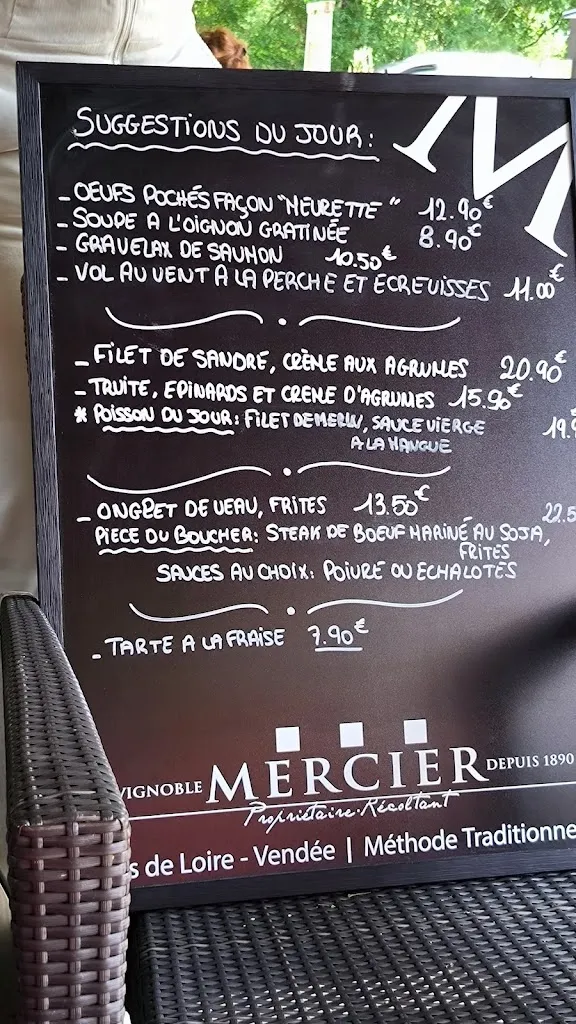 M
SUGGESTIONS DU JOUR:
- OEUFS POCHÉS FAÇON "MEURETTE" 12.90€
- SOUPE A L'OIGNON GRATINÉE 8.90€
- GRAVELAX DE SAUMON 10.50€
- VOL AU VENT A LA PERCHE ET ECREVISSES 11.00€
- FILET DE SANDRE, CRÈME AUX AGRUMES 20.90€
- TRUITE, EPINARDS ET CREME D'AGRUMES 15.90€
* POISSON DU JOUR: FILET DE MERLU, SAUCE VIERGE 19.
A LA MANGUE
- ONGLET DE VEAU, FRITES 13.50€
PIECE DU BOUCHER: STEAK DE BOEUF MARINÉ AU SOJA, 22.5
FRITES
SAUCES AU CHOIX: POIVRE OU ECHALOTES
- TARTE A LA FRAISE 7.90€
VIGNOBLE MERCIER DEPUIS 1890
Propriétaire-Récoltant
s de Loire - Vendée | Méthode Traditionne